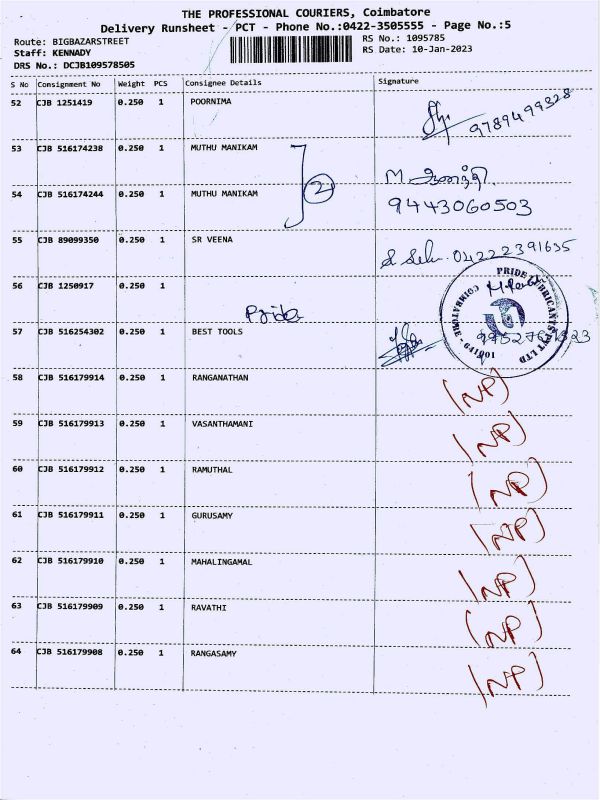 THE PROFESSIONAL COURIERS, Coimbatore
Delivery Runsheet - PCT - Phone No.:0422-3505555 - Page No.:5
Route: BIGBAZARSTREET
Staff: KENNADY
DRS No.: DCJB109578505
RS No.: 1095785
RS Date: 10-Jan-2023
S No Consignment No Weight PCS Consignee Details Signature
52 CJB 1251419 0.250 1 POORNIMA
9789499328
53 CJB 516174238 0.250 1 MUTHU MANIKAM
2
M.
54 CJB 516174244 0.250 1 MUTHU MANIKAM
9443060503
55 CJB 89099350 0.250 1 SR VEENA
04222391635
56 CJB 1250917 0.250 1
Pride
PRIDE LUBRICANTS PVT LTD
COIMBATORE - 641001
57 CJB 516254302 0.250 1 BEST TOOLS
58 CJB 516179914 0.250 1 RANGANATHAN (NP)
59 CJB 516179913 0.250 1 VASANTHAMANI (NP)
60 CJB 516179912 0.250 1 RAMUTHAL (NP)
61 CJB 516179911 0.250 1 GURUSAMY (NP)
62 CJB 516179910 0.250 1 MAHALINGAMAL (NP)
63 CJB 516179909 0.250 1 RAVATHI (NP)
64 CJB 516179908 0.250 1 RANGASAMY (NP)